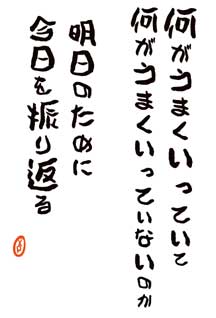 何がうまくいっていて
何がうまくいっていないのか
明日のために
今日を振り返る